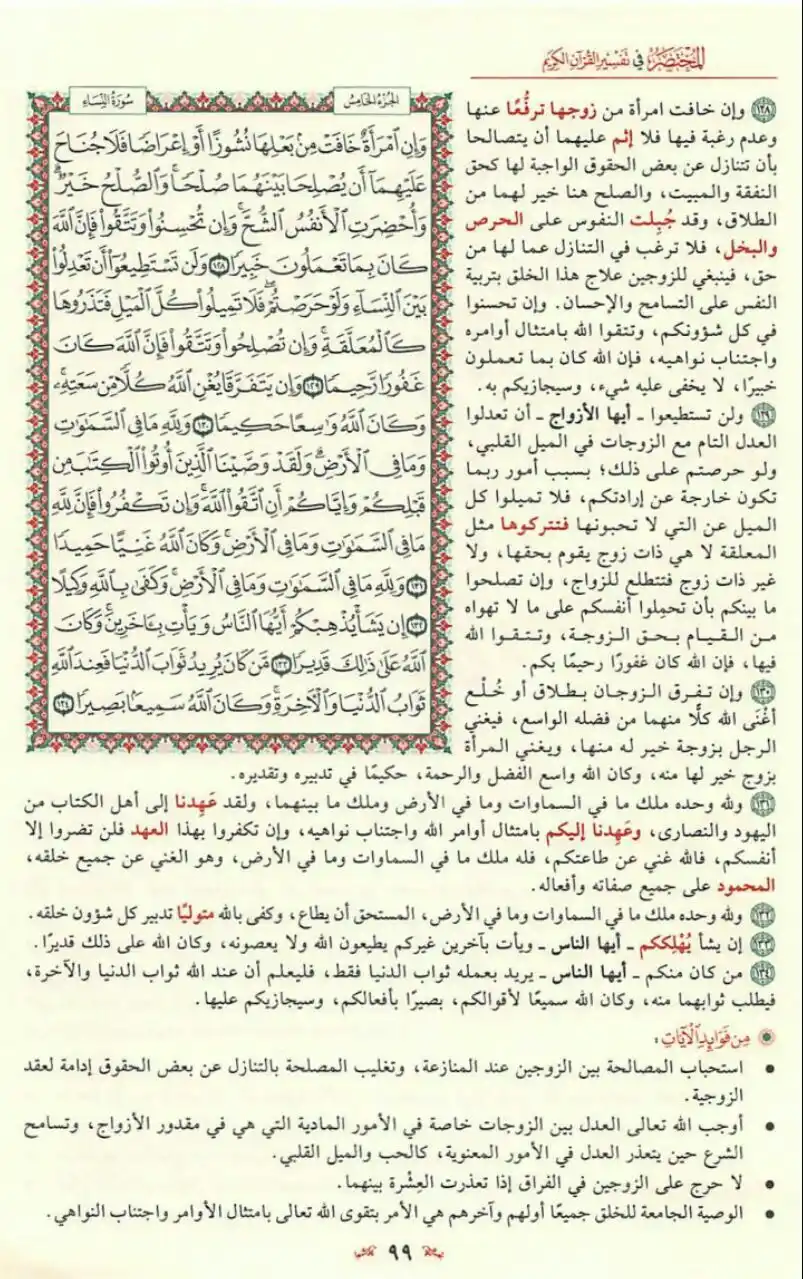 المختصر في تفسير القرآن الكريم
الجزء الخامس
سورة النساء
وَإِنِ ٱمْرَأَةٌ خَافَتْ مِنۢ بَعْلِهَا نُشُوزًا أَوْ إِعْرَاضًا فَلَا جُنَاحَ
عَلَيْهِمَآ أَن يُصْلِحَا بَيْنَهُمَا صُلْحًا ۚ وَٱلصُّلْحُ خَيْرٌ ۗ
وَأُحْضِرَتِ ٱلْأَنفُسُ ٱلشُّحَّ ۚ وَإِن تُحْسِنُوا۟ وَتَتَّقُوا۟ فَإِنَّ ٱللَّهَ
كَانَ بِمَا تَعْمَلُونَ خَبِيرًا ١٢٨ وَلَن تَسْتَطِيعُوٓا۟ أَن تَعْدِلُوا۟
بَيْنَ ٱلنِّسَآءِ وَلَوْ حَرَصْتُمْ ۖ فَلَا تَمِيلُوا۟ كُلَّ ٱلْمَيْلِ فَتَذَرُوهَا
كَٱلْمُعَلَّقَةِ ۚ وَإِن تُصْلِحُوا۟ وَتَتَّقُوا۟ فَإِنَّ ٱللَّهَ كَانَ
غَفُورًا رَّحِيمًا ١٢٩ وَإِن يَتَفَرَّقَا يُغْنِ ٱللَّهُ كُلًّا مِّن سَعَتِهِۦ ۚ
وَكَانَ ٱللَّهُ وَٰسِعًا حَكِيمًا ١٣٠ وَلِلَّهِ مَا فِى ٱلسَّمَٰوَٰتِ
وَمَا فِى ٱلْأَرْضِ ۗ وَلَقَدْ وَصَّيْنَا ٱلَّذِينَ أُوتُوا۟ ٱلْكِتَٰبَ مِن
قَبْلِكُمْ وَإِيَّاكُمْ أَنِ ٱتَّقُوا۟ ٱللَّهَ ۚ وَإِن تَكْفُرُوا۟ فَإِنَّ لِلَّهِ
مَا فِى ٱلسَّمَٰوَٰتِ وَمَا فِى ٱلْأَرْضِ ۚ وَكَانَ ٱللَّهُ غَنِيًّا حَمِيدًا
١٣١ وَلِلَّهِ مَا فِى ٱلسَّمَٰوَٰتِ وَمَا فِى ٱلْأَرْضِ ۚ وَكَفَىٰ بِٱللَّهِ وَكِيلًا
١٣٢ إِن يَشَأْ يُذْهِبْكُمْ أَيُّهَا ٱلنَّاسُ وَيَأْتِ بِـَٔاخَرِينَ ۚ وَكَانَ
ٱللَّهُ عَلَىٰ ذَٰلِكَ قَدِيرًا ١٣٣ مَّن كَانَ يُرِيدُ ثَوَابَ ٱلدُّنْيَا فَعِندَ ٱللَّهِ
ثَوَابُ ٱلدُّنْيَا وَٱلْـَٔاخِرَةِ ۚ وَكَانَ ٱللَّهُ سَمِيعًۢا بَصِيرًا ١٣٤
١٢٨ وإن خافت امرأة من زوجها ترفُّعًا عنها
وعدم رغبة فيها فلا إثم عليهما أن يتصالحا
بأن تتنازل عن بعض الحقوق الواجبة لها كحق
النفقة والمبيت، والصلح هنا خير لهما من
الطلاق، وقد جُبِلت النفوس على الحرص
والبخل، فلا ترغب في التنازل عما لها من
حق، فينبغي للزوجين علاج هذا الخلق بتربية
النفس على التسامح والإحسان. وإن تحسنوا
في كل شؤونكم، وتتقوا الله بامتثال أوامره
واجتناب نواهيه، فإن الله كان بما تعملون
خبيرًا، لا يخفى عليه شيء، وسيجازيكم به.
١٢٩ ولن تستطيعوا ـ أيها الأزواج ـ أن تعدلوا
العدل التام مع الزوجات في الميل القلبي،
ولو حرصتم على ذلك؛ بسبب أمور ربما
تكون خارجة عن إرادتكم، فلا تميلوا كل
الميل عن التي لا تحبونها فتتركوها مثل
المعلقة لا هي ذات زوج يقوم بحقها، ولا
غير ذات زوج فتتطلع للزواج، وإن تصلحوا
ما بينكم بأن تحمِلوا أنفسكم على ما لا تهواه
من القيام بحق الزوجة، وتتقوا الله
فيها، فإن الله كان غفورًا رحيمًا بكم.
١٣٠ وإن تفرق الزوجان بطلاق أو خُلْع
أغْنَى الله كلًّا منهما من فضله الواسع، فيغني
الرجل بزوجة خير له منها، ويغني المرأة
بزوج خير لها منه، وكان الله واسع الفضل والرحمة، حكيمًا في تدبيره وتقديره.
١٣١ ولله وحده ملك ما في السماوات وما في الأرض وملك ما بينهما، ولقد عَهِدنا إلى أهل الكتاب من
اليهود والنصارى، وعَهِدنا إليكم بامتثال أوامر الله واجتناب نواهيه، وإن تكفروا بهذا العهد فلن تضروا إلا
أنفسكم، فالله غني عن طاعتكم، فله ملك ما في السماوات وما في الأرض، وهو الغني عن جميع خلقه،
المحمود على جميع صفاته وأفعاله.
١٣٢ ولله وحده ملك ما في السماوات وما في الأرض، المستحق أن يطاع، وكفى بالله متوليًا تدبير كل شؤون خلقه.
١٣٣ إن يشأ يُهْلِككم ـ أيها الناس ـ ويأت بآخرين غيركم يطيعون الله ولا يعصونه، وكان الله على ذلك قديرًا.
١٣٤ من كان منكم ـ أيها الناس ـ يريد بعمله ثواب الدنيا فقط، فليعلم أن عند الله ثواب الدنيا والآخرة،
فيطلب ثوابهما منه، وكان الله سميعًا لأقوالكم، بصيرًا بأفعالكم، وسيجازيكم عليها.
من فوائد الآيات:
• استحباب المصالحة بين الزوجين عند المنازعة، وتغليب المصلحة بالتنازل عن بعض الحقوق إدامة لعقد
الزوجية.
• أوجب الله تعالى العدل بين الزوجات خاصة في الأمور المادية التي هي في مقدور الأزواج، وتسامح
الشرع حين يتعذر العدل في الأمور المعنوية، كالحب والميل القلبي.
• لا حرج على الزوجين في الفراق إذا تعذرت العِشْرة بينهما.
• الوصية الجامعة للخلق جميعًا أولهم وآخرهم هي الأمر بتقوى الله تعالى بامتثال الأوامر واجتناب النواهي.
٩٩